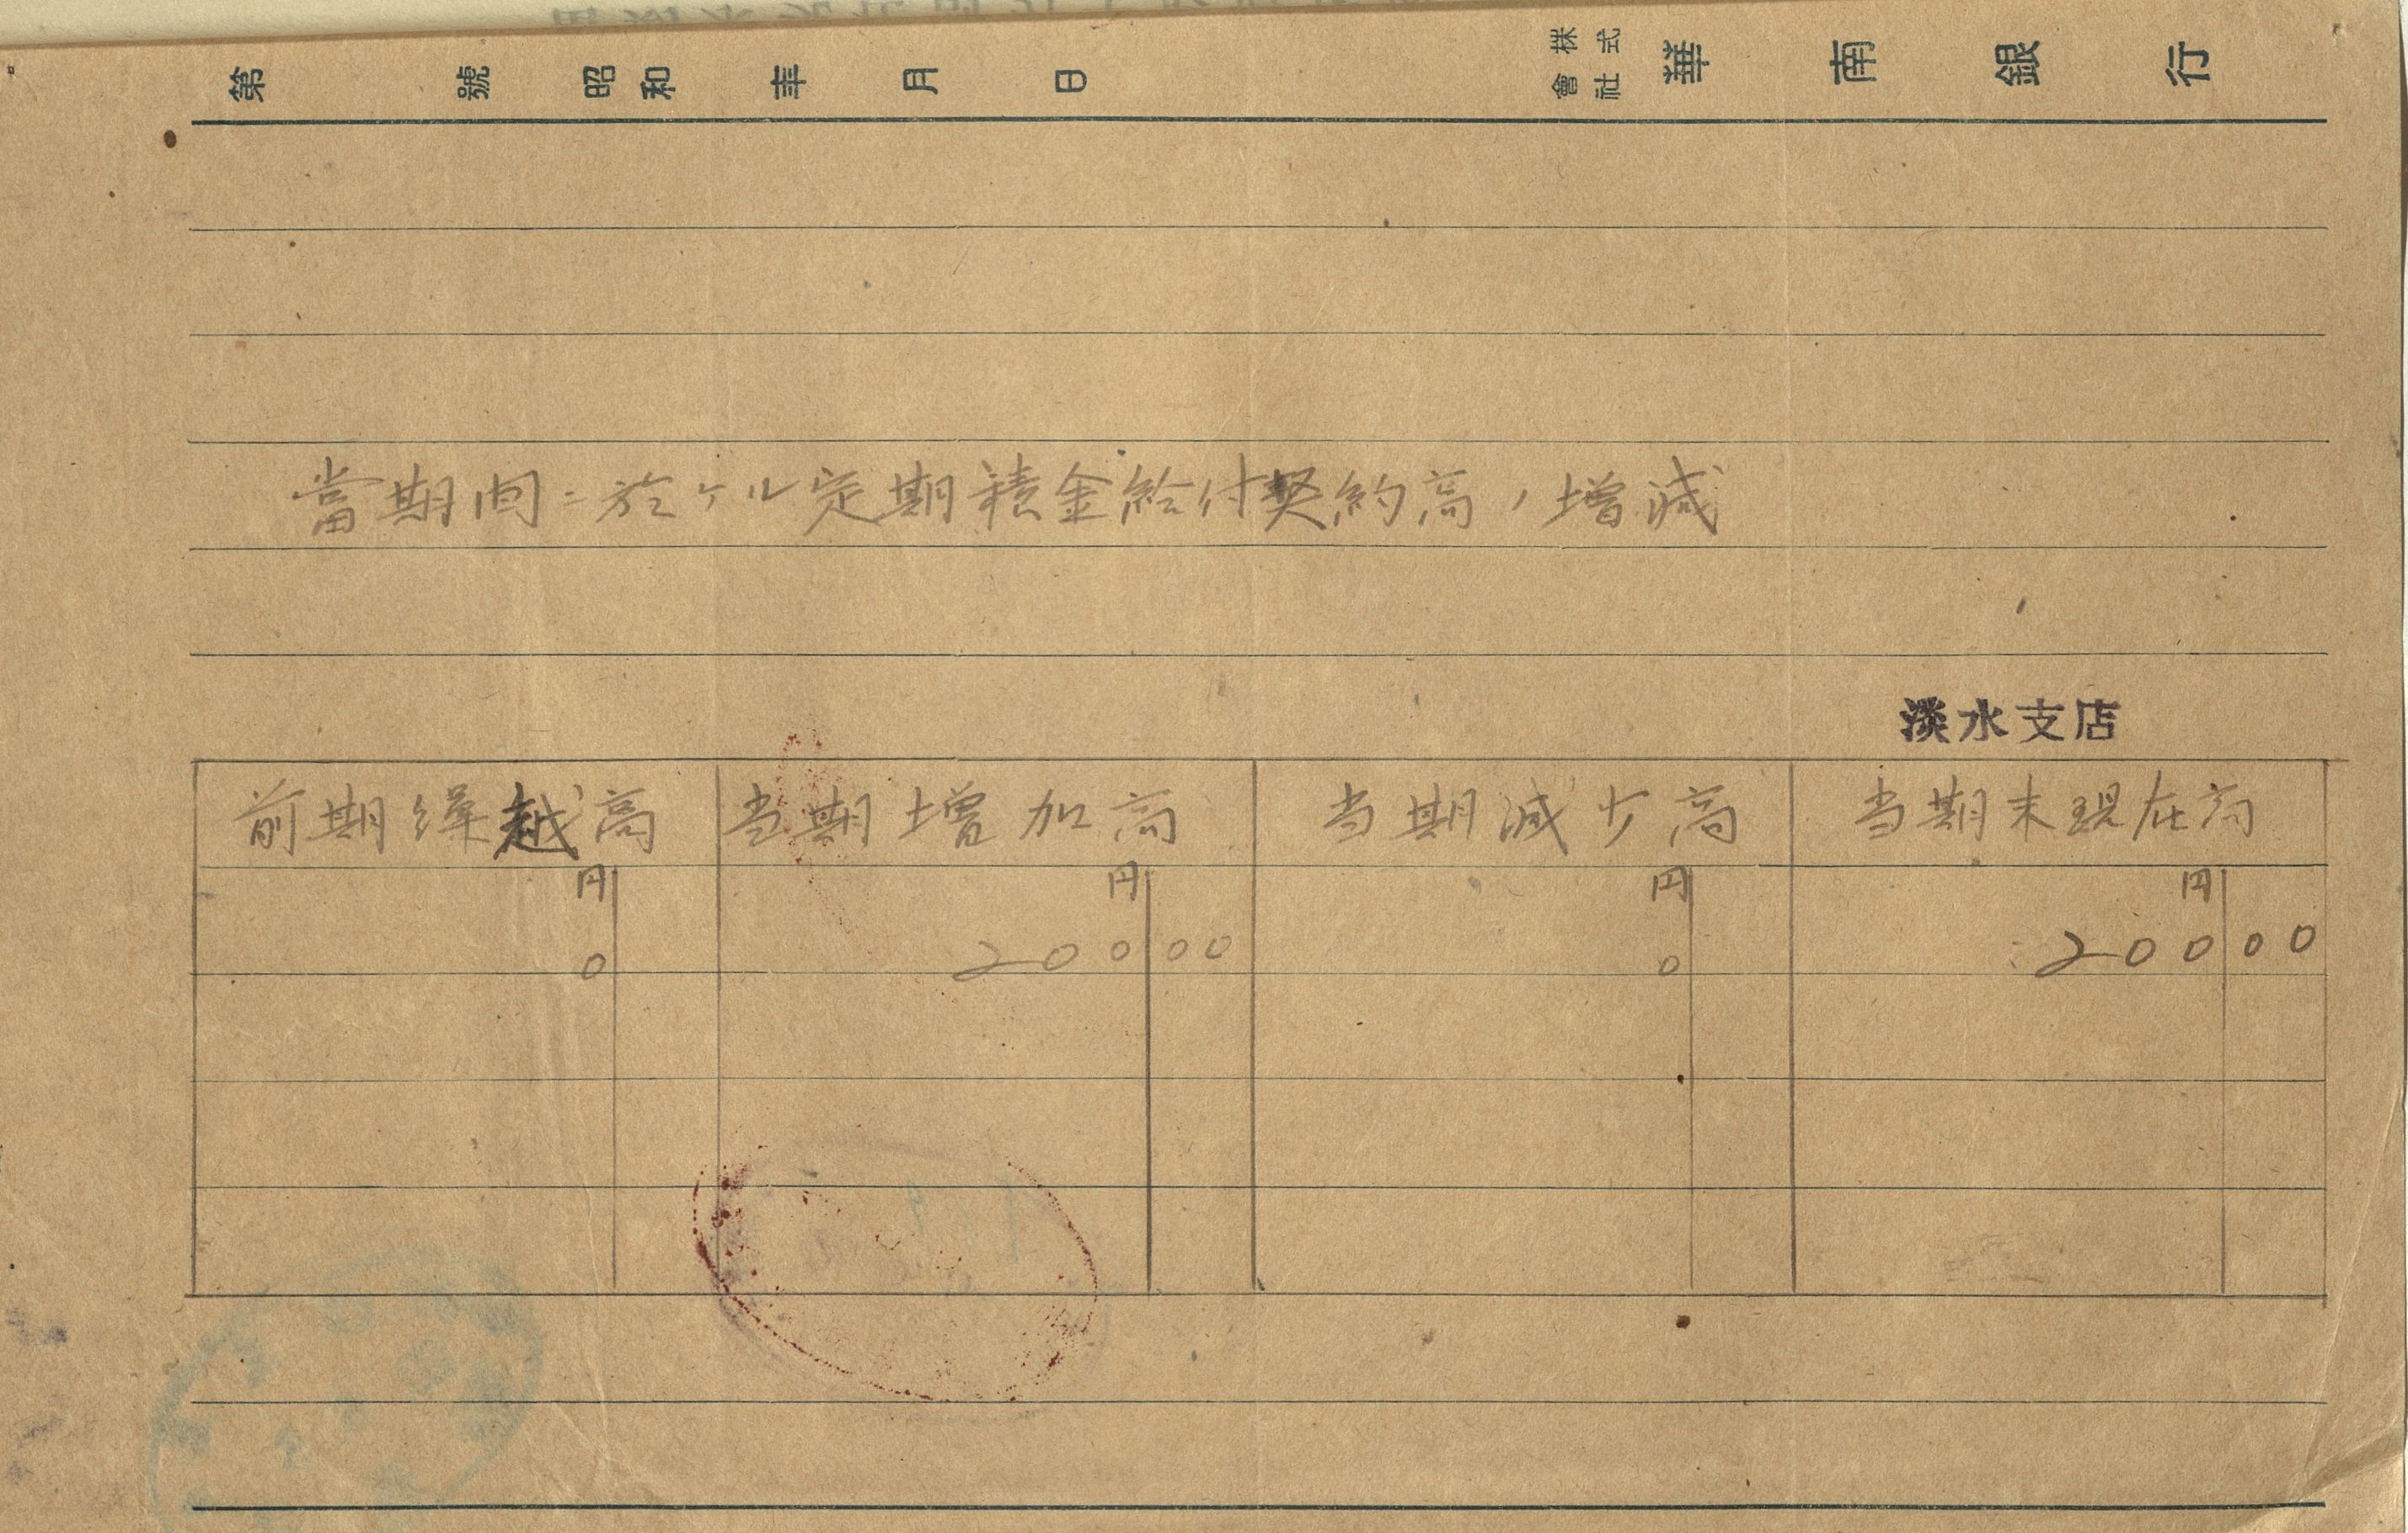 第 號 昭和 年 月 日 株式會社 華南銀行
當期間ニ於ケル定期積金給付契約高ノ増減
淡水支店
前期繰越高 当期増加高 当期減少高 当期末現在高
円 円 円 円
0 200 00 0 200 00